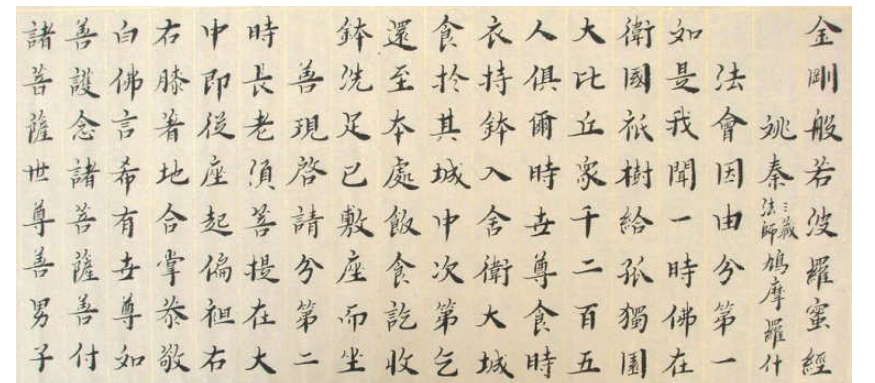 金剛般若波羅蜜經
姚秦三藏法師鳩摩羅什
法會因由分第一
如是我聞一時佛在
衛國祇樹給孤獨園
大比丘衆千二百五
人俱爾時世尊食時
衣持鉢入舍衛大城
食於其城中次第乞
還至本處飯食訖收
鉢洗足已敷座而坐
善現啓請分第二
時長老須菩提在大
中即從座起偏袒右
右膝著地合掌恭敬
白佛言希有世尊如
善護念諸菩薩善付
諸菩薩世尊善男子